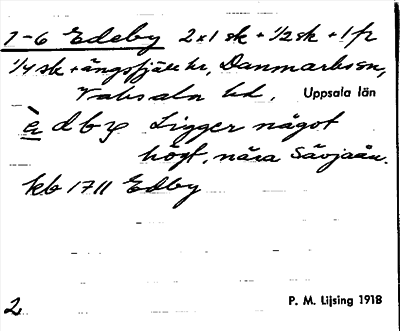 1-6 Edeby 2x1 sk + 1/2 sk + 1 fr
1/4 sk + ängsfjäll kr, Danmarks sn,
Vaksala hd. Uppsala län
è d b y Ligger något
högt, nära Sävjaån.
kb 1711 Edby
2 P. M. Lijsing 1918